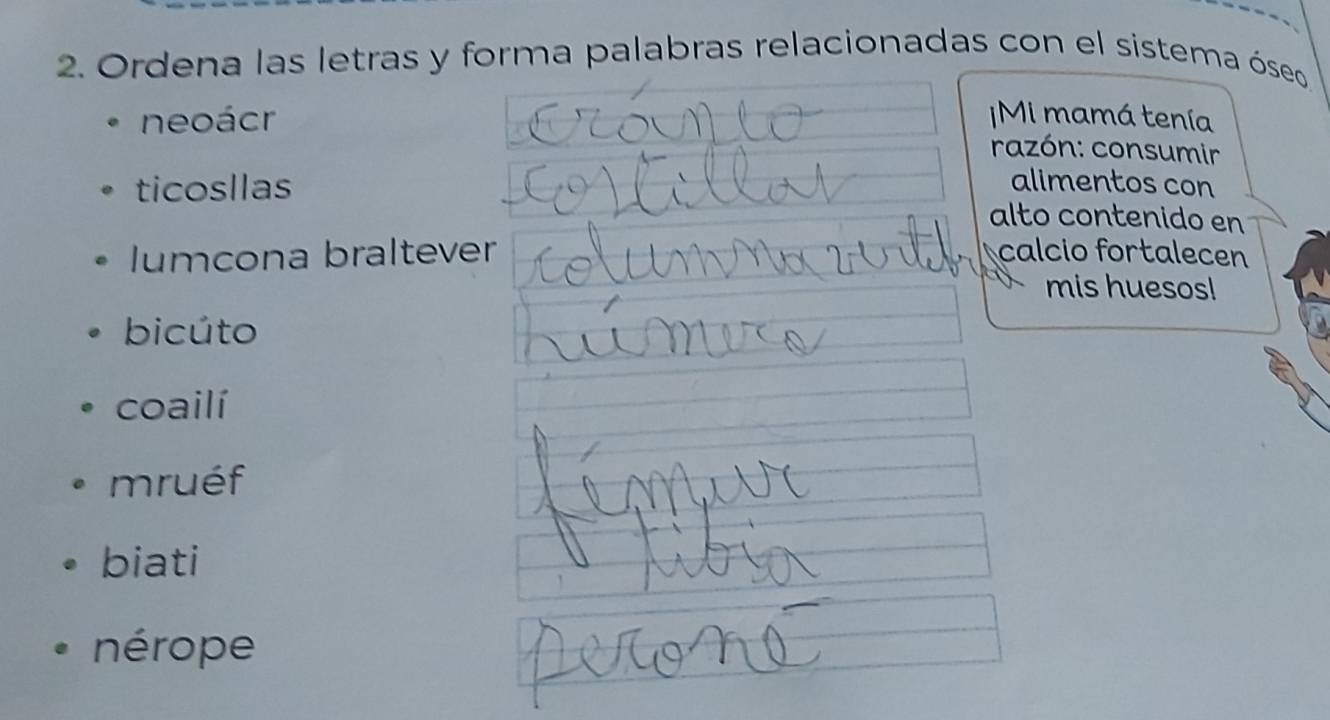 2. Ordena las letras y forma palabras relacionadas con el sistema óseo
• neoácr cráneo
• ticosllas costillas
• lumcona braltever columna vertebral
• bicúto húmero
• coailí
• mruéf fémur
• biati tibia
• nérope peroné
¡Mi mamá tenía
razón: consumir
alimentos con
alto contenido en
calcio fortalecen
mis huesos!